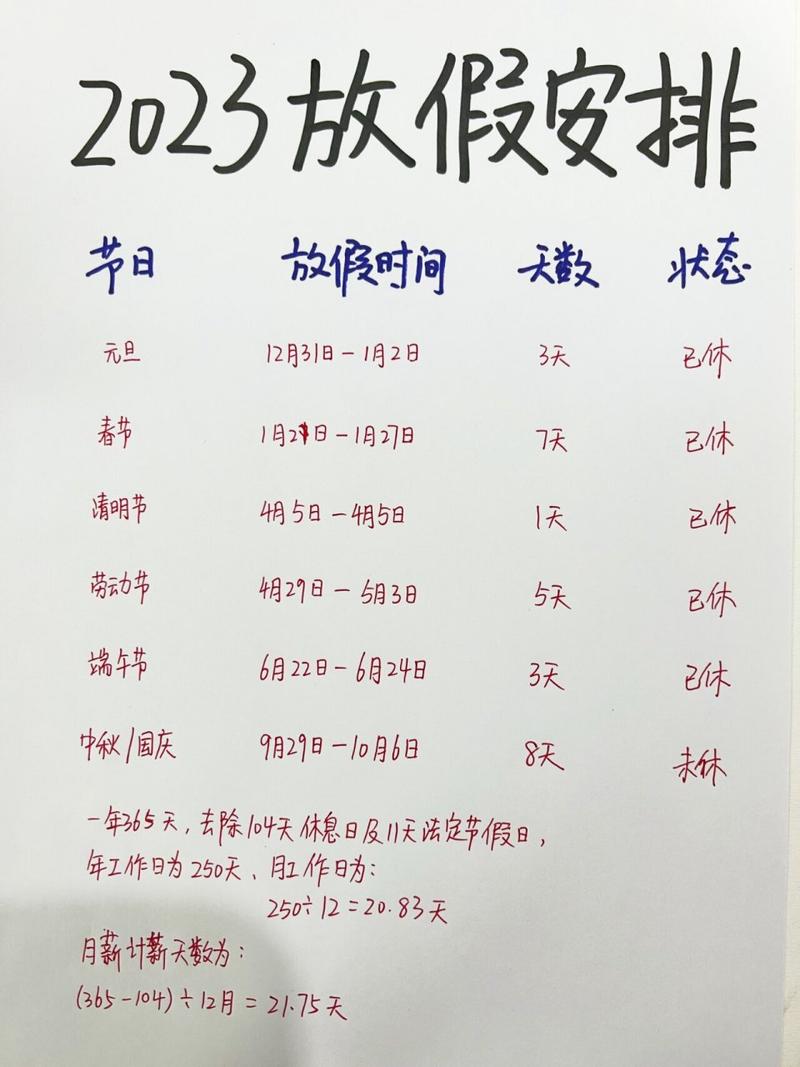 2023放假安排
节日 放假时间 天数 状态
元旦 12月31日-1月2日 3天 已休
春节 1月21日-1月27日 7天 已休
清明节 4月5日-4月5日 1天 已休
劳动节 4月29日-5月3日 5天 已休
端午节 6月22日-6月24日 3天 已休
中秋/国庆 9月29日-10月6日 8天 未休
一年365天,去除104天休息日及11天法定节假日,
年工作日为250天、月工作日为:
250÷12=20.83天
月薪计薪天数为:
(365-104)÷12月=21.75天